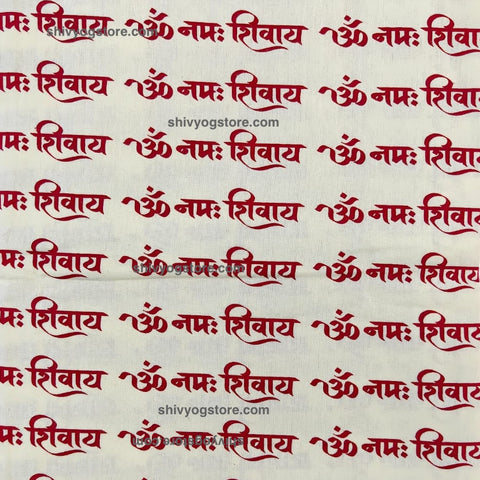 मः शिवाय ॐ नमः शिवाय ॐ नमः शिवाय
shivyogstore.com
मः शिवाय ॐ नमः शिवाय ॐ नमः शिवाय
shivyogstore.com
मः शिवाय ॐ नमः शिवाय ॐ नमः शिवाय
मः शिवाय ॐ नमः शिवाय ॐ नमः शिवाय
मः शिवाय ॐ नमः शिवाय ॐ नमः शिवाय
shivyogstore.com
मः शिवाय ॐ नमः शिवाय ॐ नमः शिवाय
मः शिवाय ॐ नमः शिवाय ॐ नमः शिवाय
shivyogstore.com
मः शिवाय ॐ नमः शिवाय ॐ नमः शिवाय
shivyogstore.com